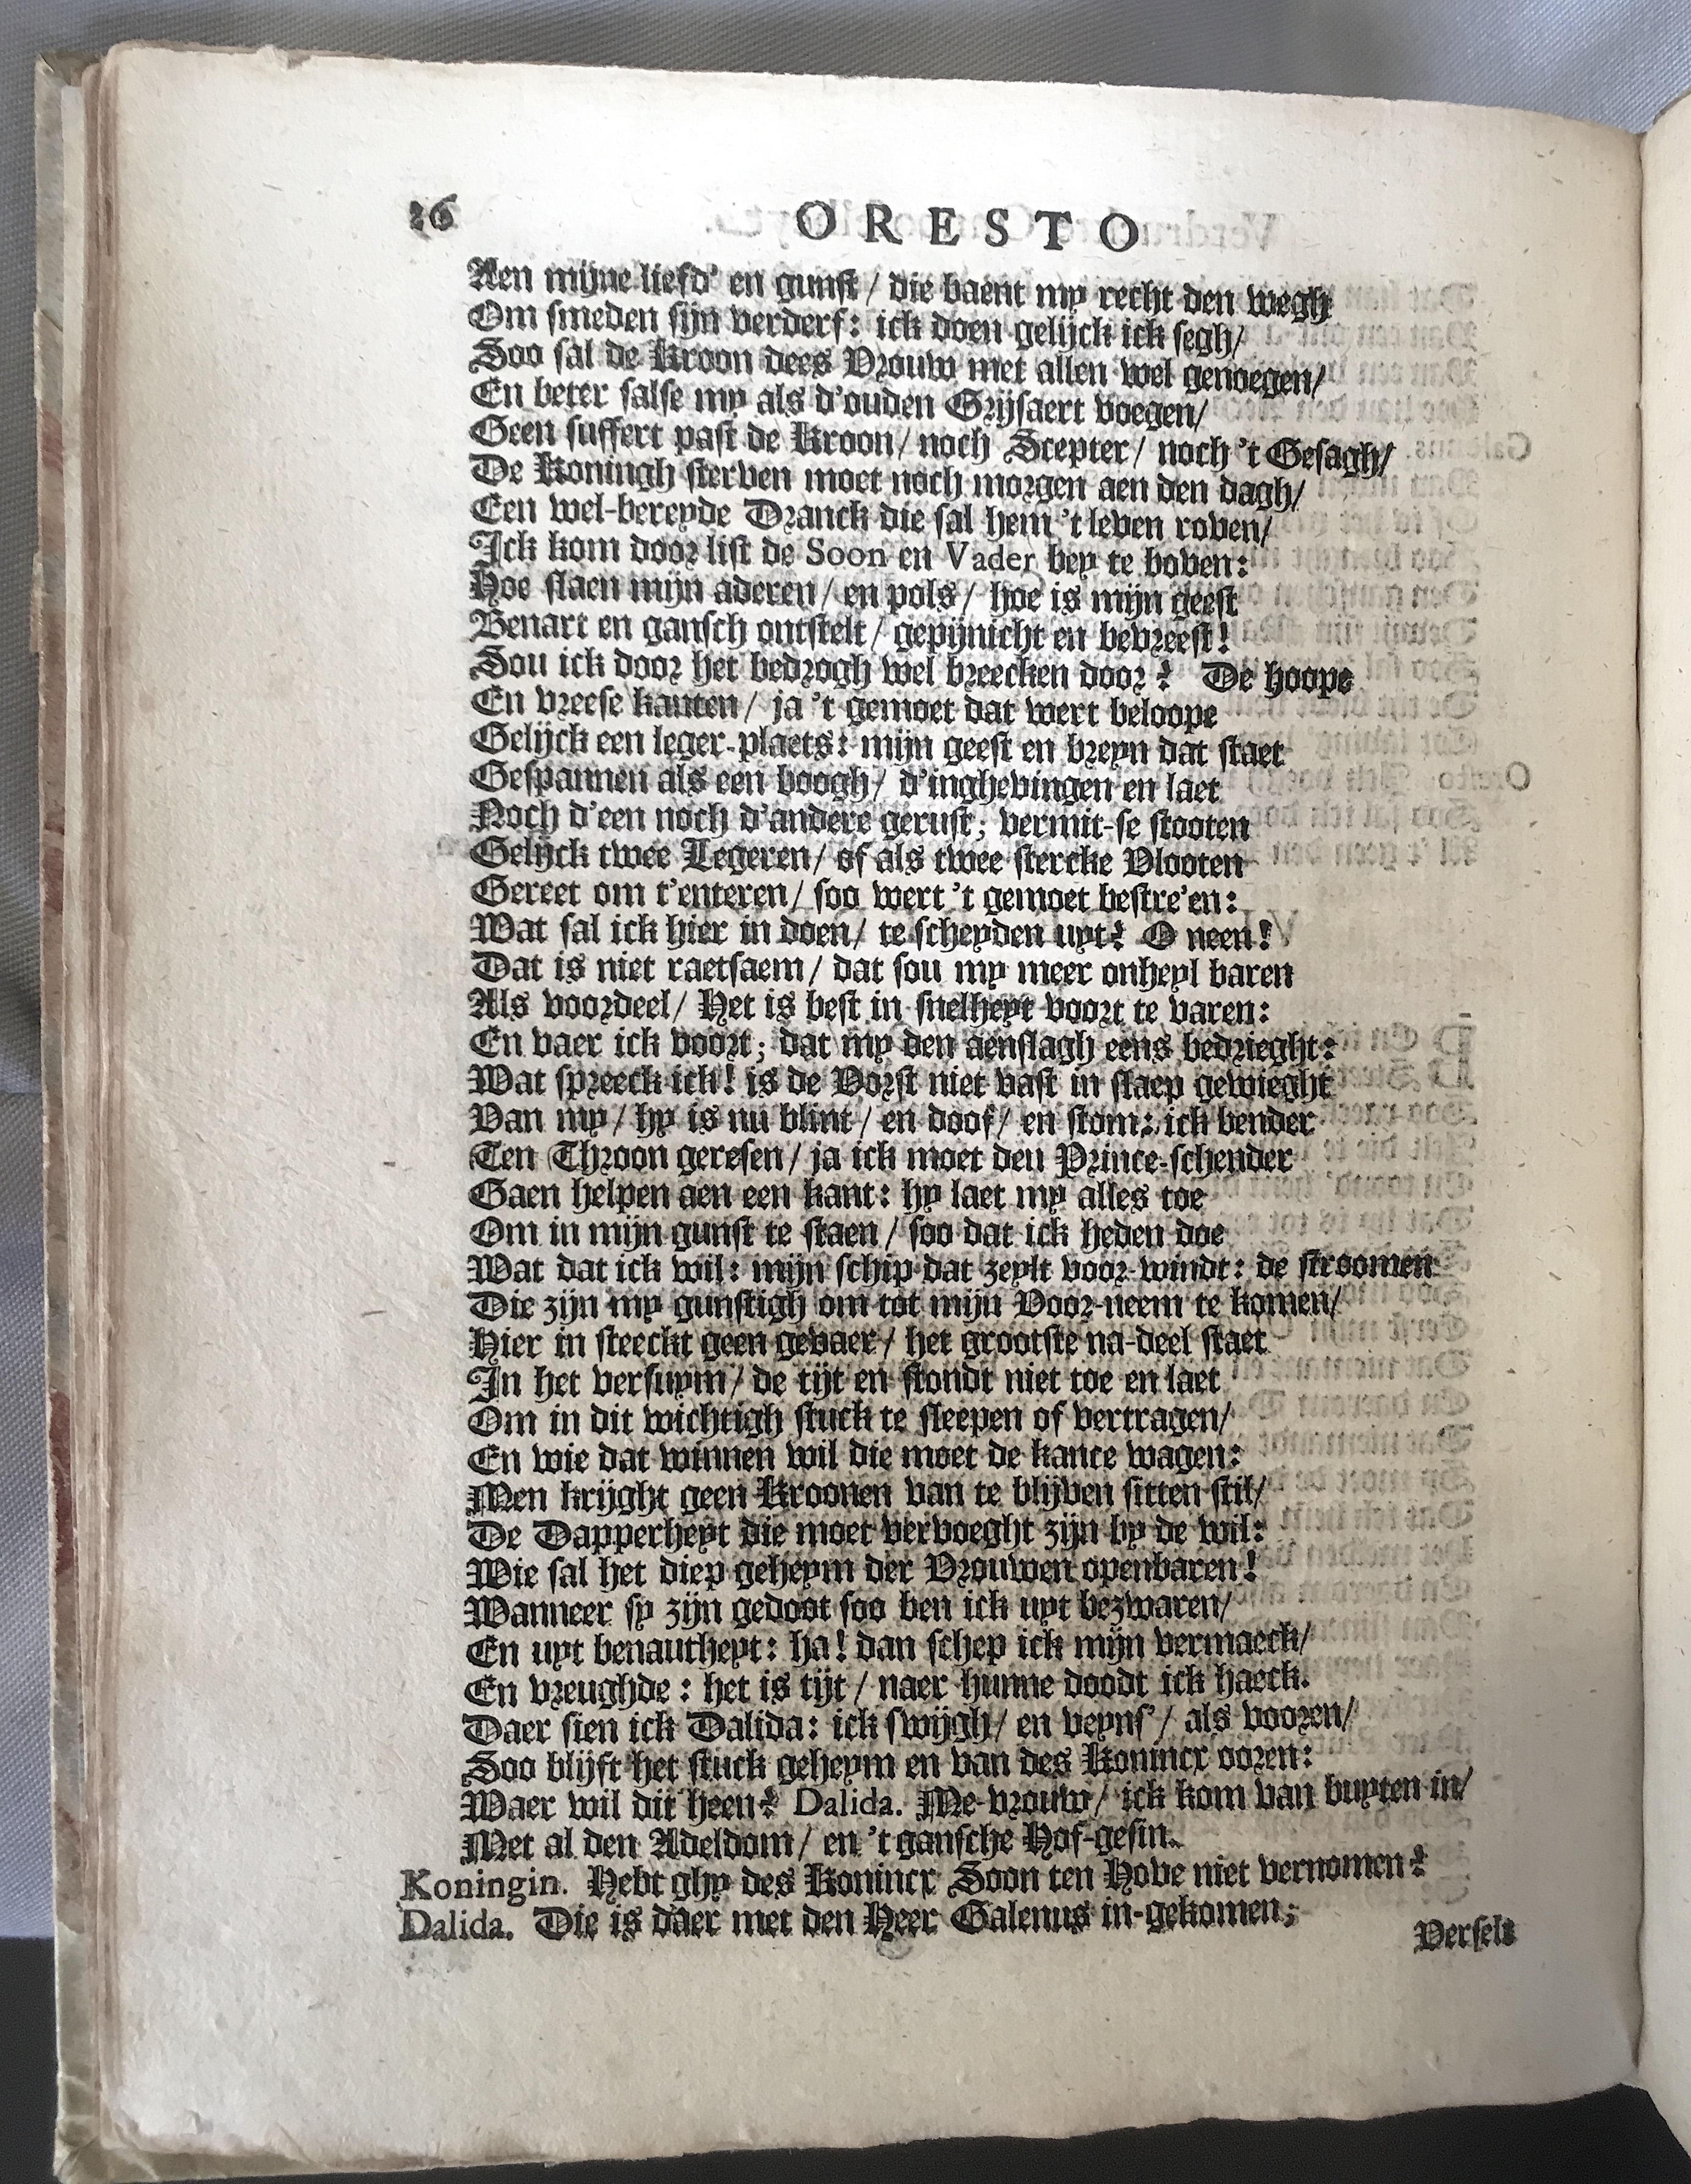 26 ORESTO
Aen mijne liefd' en gunst / die baent my recht den wegh
Om smeden sijn verderf: ick doen gelijck ick segh/
Soo sal de Kroon dees Vrouw met allen wel genoegen/
En beter salse my als d'ouden Grijsaert voegen/
Geen suffert past de Kroon/ noch Scepter/ noch 't Gesagh/
De Koningh sterven moet noch morgen aen den dagh/
Een wel-bereyde Dranck die sal hem 't leven roven/
Ick kom door list de Soon en Vader bey te boven:
Hoe slaen mijn aderen/ en pols/ hoe is mijn geest
Benart en gansch ontstelt/ gepijnicht en bevreest!
Sou ick door het bedrogh wel breecken door? De hoope
En vreese kanten/ ja 't gemoet dat wert beloope
Gelijck een leger-plaets: mijn geest en breyn dat staet
Gespannen als een boogh/ d'inghevingen en laet
Noch d'een noch d'andere gerust; vermit-se stooten
Gelijck twee Legeren/ of als twee stercke Vlooten
Gereet om t'enteren/ soo wert 't gemoet bestre'en:
Wat sal ick hier in doen/ te scheyden uyt? O neen!
Dat is niet raetsaem/ dat sou my meer onheyl baren
Als voordeel/ Het is best in snelheyt voort te varen:
En vaer ick voort; dat my den aenslagh eens bedrieght:
Wat spreeck ick! is de Vorst niet vast in slaep gewieght
Van my/ hy is nu blint/ en doof/ en stom: ick bender
Ten Throon geresen/ ja ick moet den Prince-schender
Gaen helpen aen een kant: hy laet my alles toe
Om in mijn gunst te staen/ soo dat ick heden doe
Wat dat ick wil: mijn schip dat zeylt voor-windt: de stroomen
Die zijn my gunstigh om tot mijn Voor-neem te komen/
Hier in steeckt geen gevaer/ het grootste na-deel staet
In het versuym/ de tijt en stondt niet toe en laet
Om in dit wichtigh stuck te sleepen of vertragen/
En wie dat winnen wil die moet de kance wagen:
Men krijght geen Kroonen van te blijven sitten stil/
De Dapperheyt die moet vervoeght zijn by de wil:
Wie sal het diep geheym der Vrouwen openbaren!
Wanneer sy zijn gedoot soo ben ick uyt bezwaren/
En uyt benautheyt: ha! dan schep ick mijn vermaeck/
En vreughde: het is tijt/ naer hunne doodt ick haeck.
Daer sien ick Dalida: ick swijgh/ en veyns'/ als vooren/
Soo blijft het stuck geheym en van des Konincx ooren:
Waer wil dit heen? Dalida. Me-vrouw/ ick kom van buyten in/
Met al den Adeldom/ en 't gansche Hof-gesin.
Koningin. Hebt ghy des Konincx Soon ten Hove niet vernomen?
Dalida. Die is daer met den Heer Galenus in-gekomen;
Verselt